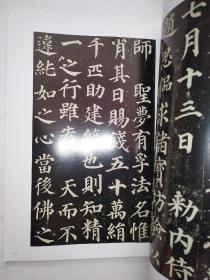 七月十三日勅内侍
趙思偘求諸寶坊驗
師聖夢有孚法名惟
肖其日賜錢五十萬絹
千匹助建修也則知精
一之行雖先天而不
違純如之心當後佛之